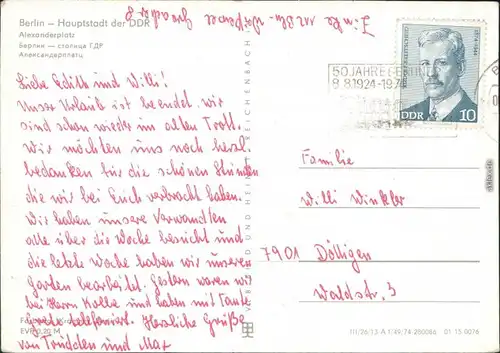 Berlin – Hauptstadt der DDR
Alexanderplatz
Берлин — столица ГДР
Александерплатц
Liebe Edith und Willi!
Unser Urlaub ist beendet, wir
sind schon wieder im alten Trott.
Wir möchten uns noch herzl.
bedanken für die schönen Stunden
die wir bei Euch verbracht haben.
Wir haben unsere Verwandten
alle über die Woche besucht und
die letzte Woche haben wir unseren
Garten bearbeitet. Gestern waren wir
bei Herrn Kolbe und haben mit Tante
telefoniert. Herzliche Grüße
von Trudchen und Max
EVP 0,20 M
VERLAG UND HEIMAT REICHENBACH
50 JAHRE
8.8.1924-1974
DDR 10
Familie
Willi Winkler
7901 Dölligen
Waldstr. 3
III/26/13 A 1/49/74 280086 01 15 0076